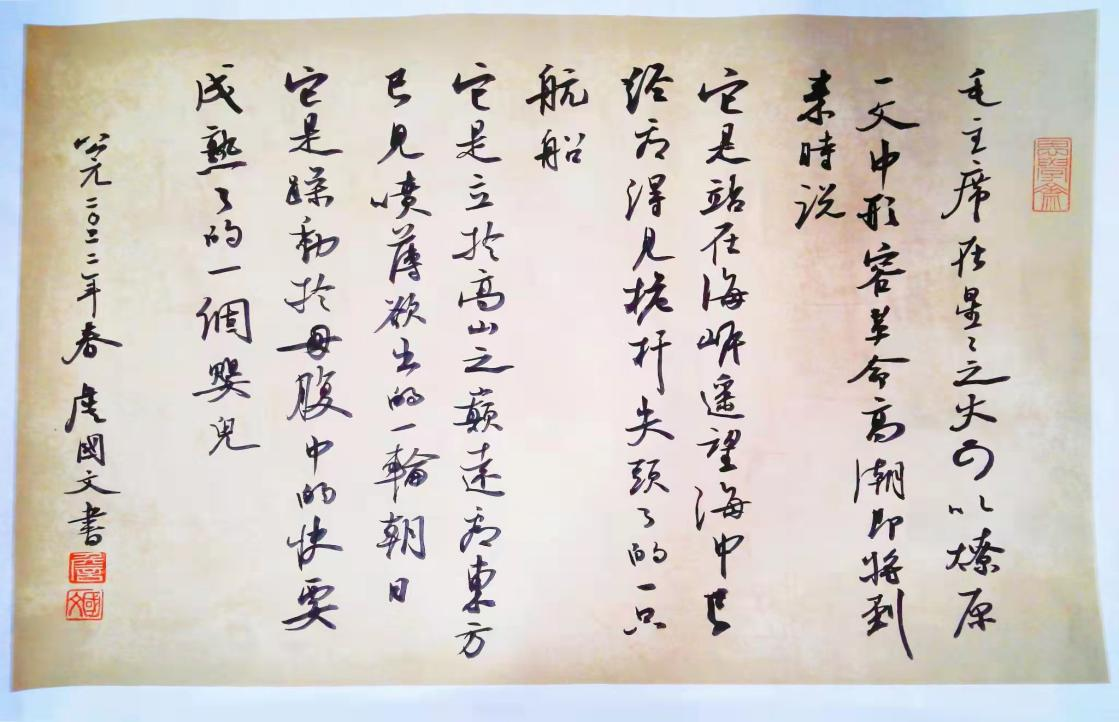 毛主席在星〻之火可以燎原
一文中形容革命高潮即將到
来時说
它是站在海岸遥望海中已
经看得見桅杆尖頭了的一只
航船
它是立於高山之巅远看東方
已見喷薄欲出的一輪朝日
它是躁動於母腹中的快要
成熟了的一個嬰兒
公元二〇二二年春 虞國文書